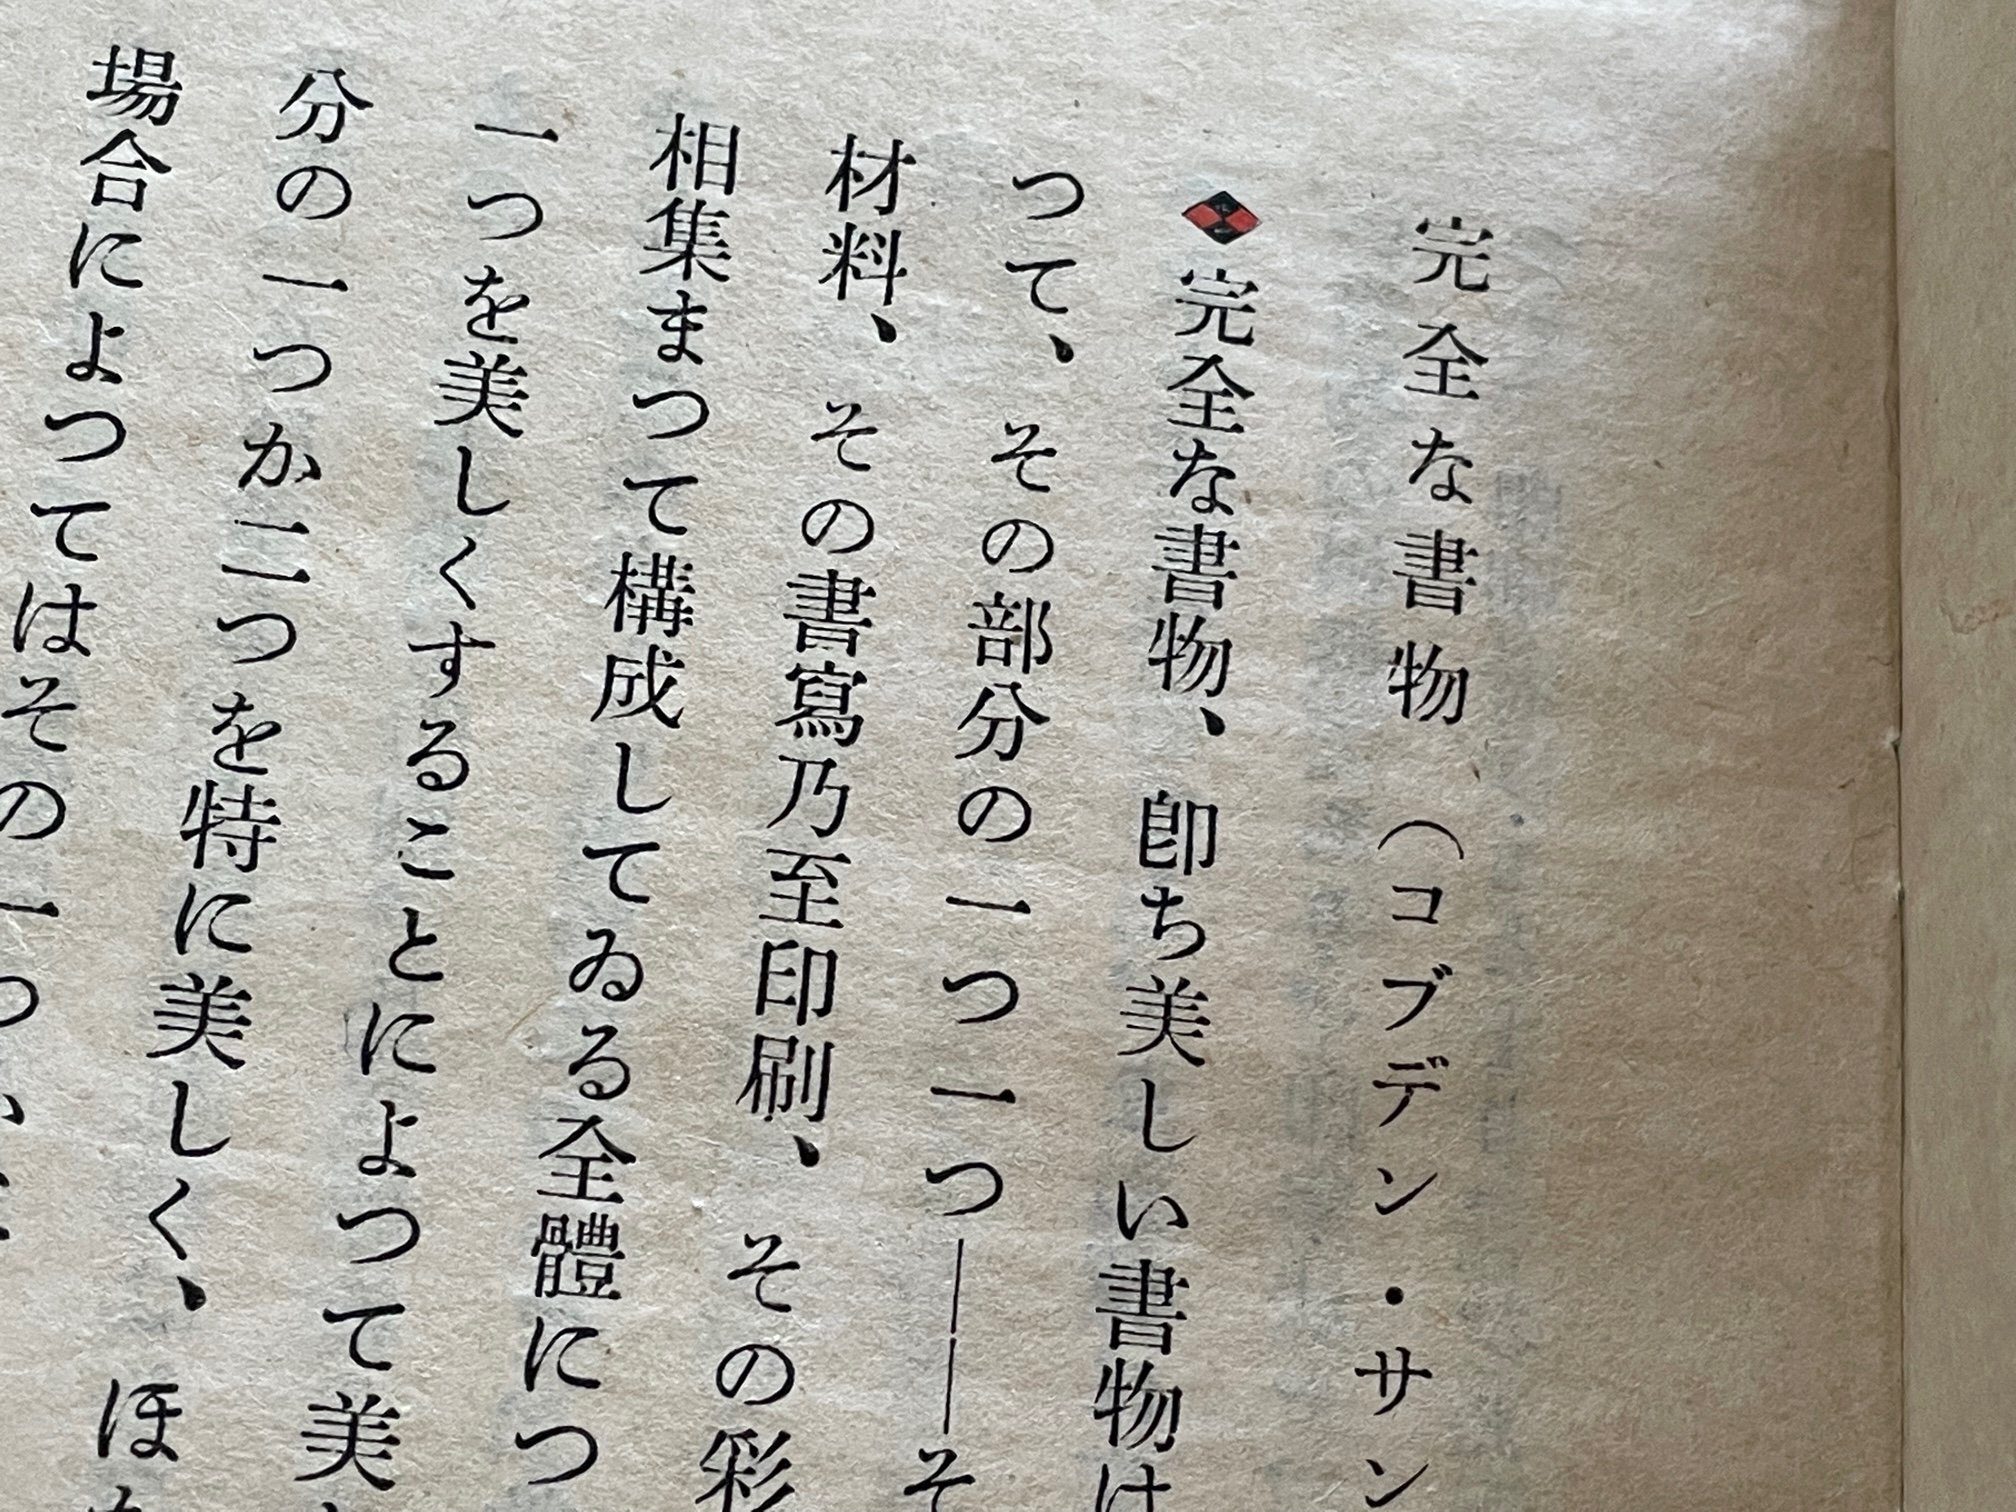 完全な書物 （コブデン・サン
完全な書物、卽ち美しい書物は
つて、その部分の一つ一つ――そ
材料、その書寫乃至印刷、その彩
相集まつて構成してゐる全體につ
一つを美しくすることによつて美
分の一つか二つを特に美しく、ほ
場合によつてはその一つ